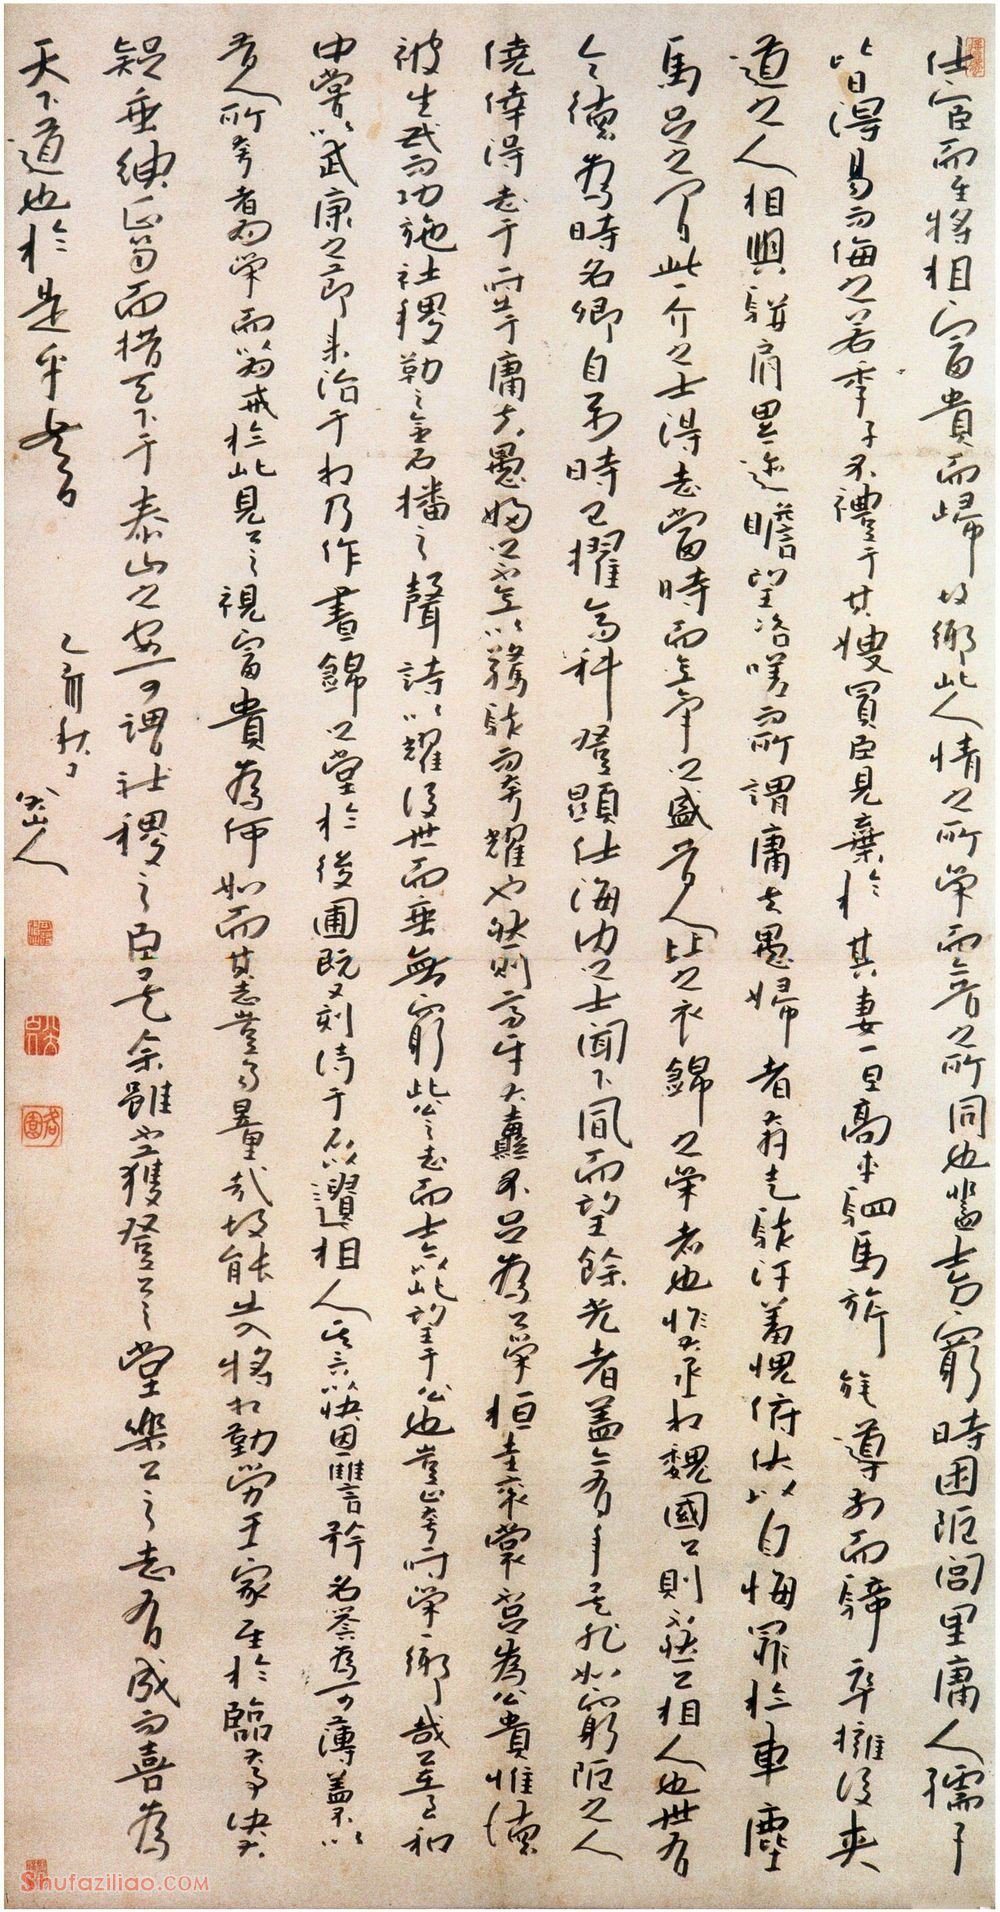 仕宦而至將相富貴而歸故鄉此人情之所榮而今昔之所同也蓋士方窮時困阨閭里庸人孺子
皆得易而侮之若季子不禮于其嫂買臣見棄於其妻一旦高車駟馬旗旄導前而騎卒擁後夾
道之人相與駢肩累迹瞻望咨嗟而所謂庸夫愚婦者奔走駭汗羞愧俯伏以自悔罪於車塵
馬足之間此一介之士得志當時而意氣之盛昔人比之衣錦之榮者也惟大丞相魏國公則然公相人也世有
令德為時名卿自公少時已擢高科登顯仕海內之士聞下風而望餘光者蓋亦有年矣非如窮阨之人
僥倖得志于一時出于庸夫愚婦之不意以驚駭而夸耀也然則高牙大纛不足為公榮桓圭袞裳不足為公貴惟德
被生民而功施社稷勒之金石播之聲詩以耀後世而垂無窮此公之志而士亦以此望于公也豈止夸一時榮一鄉哉公在至和
中嘗以武康之節來治于相乃作晝錦之堂於後圃既又刻詩于石以遺相人其言以快恩讎矜名譽為可薄蓋不以
昔人所夸者為榮而以為戒於此見公之視富貴為何如而其志豈易量哉故能出入將相勤勞王家至於臨大事決大
議垂紳正笏而措天下于泰山之安可謂社稷之臣矣余雖不獲登公之堂樂公之志有成而喜為
天下道也於是乎書
乙亥秋日 八大山人
Shufaziliao.COM